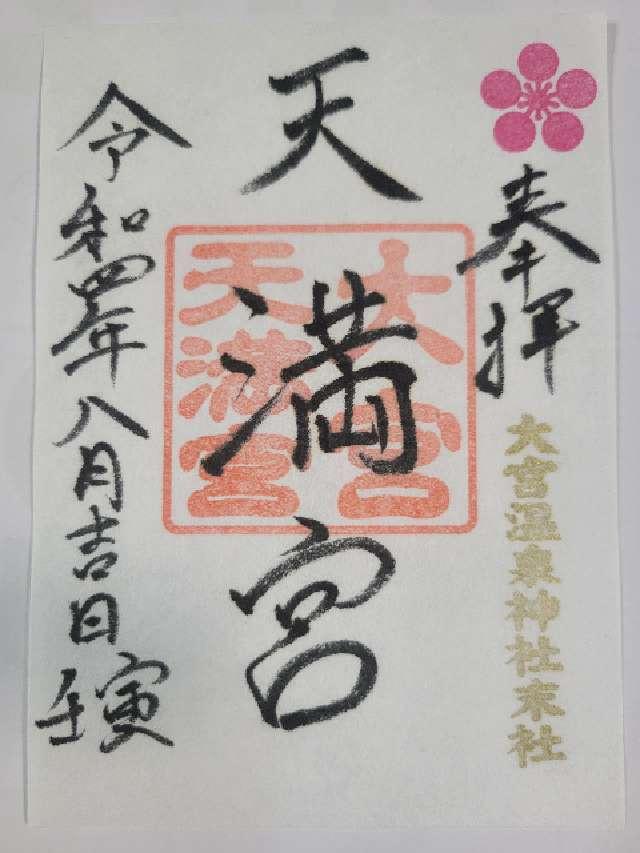 奉拝
大宮温泉神社末社
天満宮
大宮
天満宮
令和四年八月吉日
壬寅